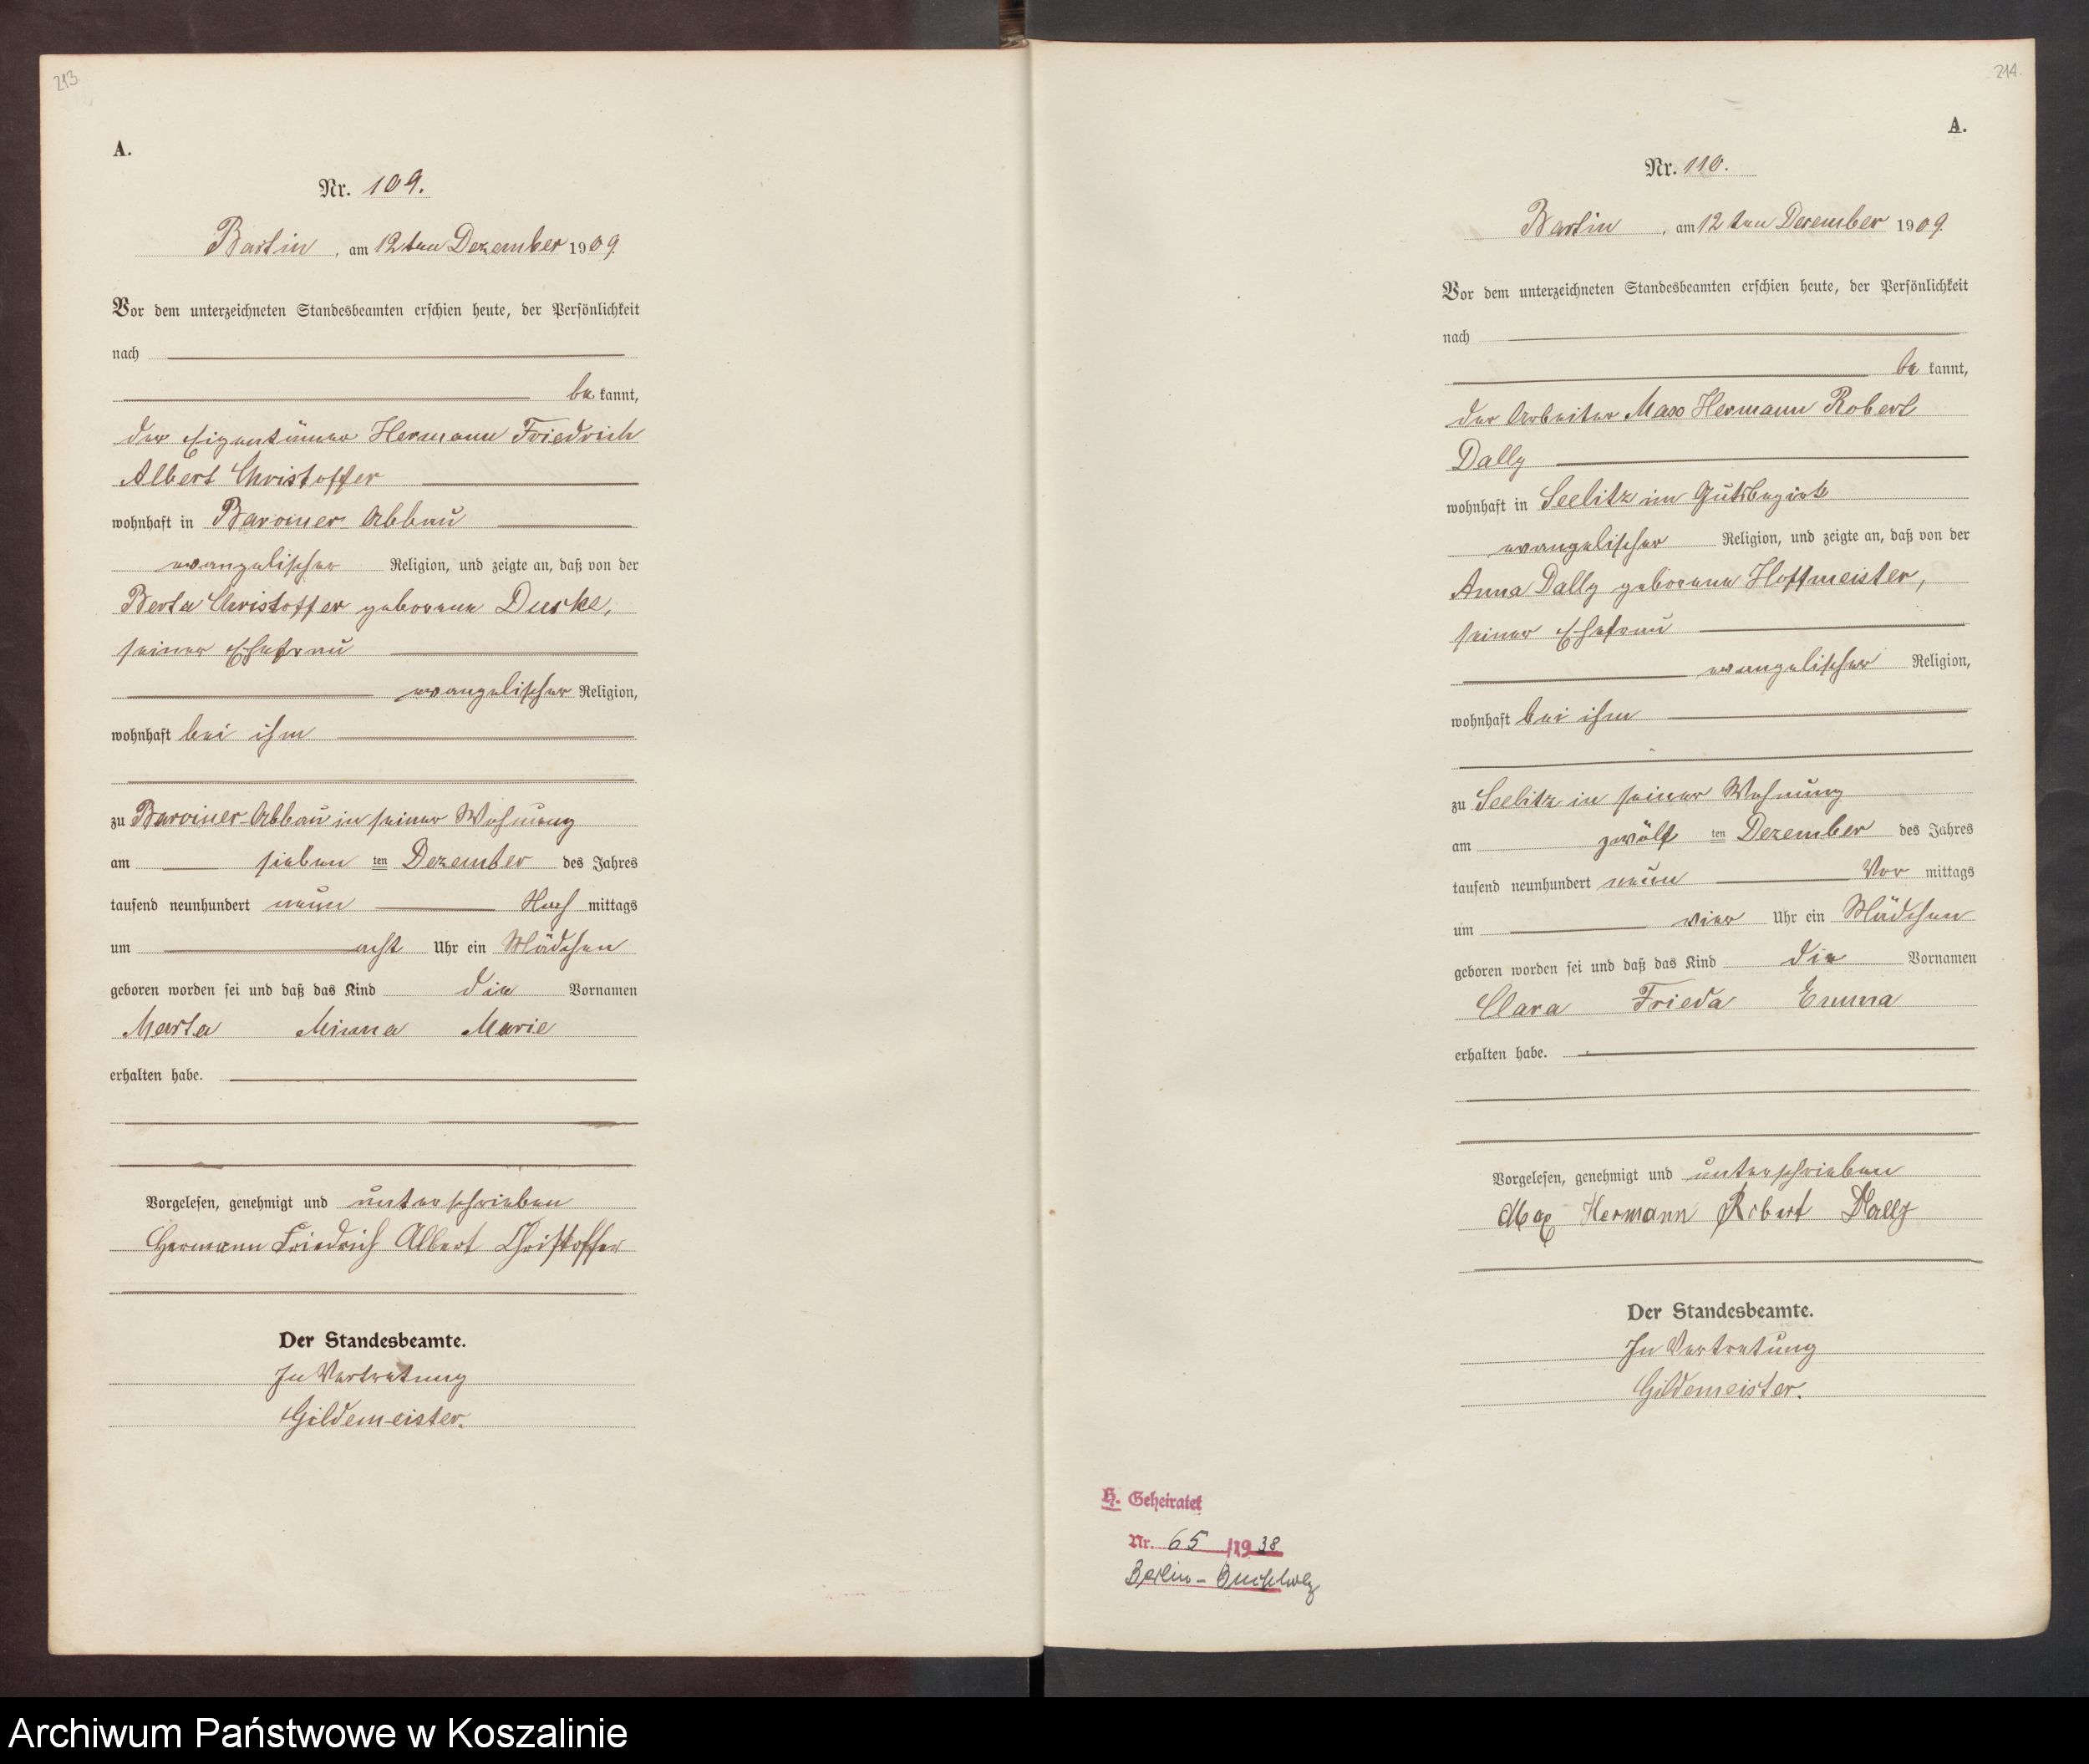 213.
A.
Nr. 109.
Bartin, am 12ten Dezember 1909.
Vor dem unterzeichneten Standesbeamten erschien heute, der Persönlichkeit
nach
bekannt,
der Eigentümer Hermann Friedrich
Albert Christoffer
wohnhaft in Barviner-Abbau
evangelischer Religion, und zeigte an, daß von der
Berta Christoffer geborene Duske,
seiner Ehefrau
evangelischer Religion,
wohnhaft bei ihm
zu Barviner-Abbau in seiner Wohnung
am sieben ten Dezember des Jahres
tausend neunhundert neun Nach mittags
um acht Uhr ein Mädchen
geboren worden sei und daß das Kind die Vornamen
Marta Minna Marie
erhalten habe.
Vorgelesen, genehmigt und unterschrieben
Hermann Friedrich Albert Christoffer
Der Standesbeamte.
In Vertretung
Gildemeister.
214.
A.
Nr. 110.
Bartin, am 12ten Dezember 1909.
Vor dem unterzeichneten Standesbeamten erschien heute, der Persönlichkeit
nach
bekannt,
der Arbeiter Max Hermann Robert
Dally
wohnhaft in Seelitz im Gutsbezirk
evangelischer Religion, und zeigte an, daß von der
Anna Dally geborene Hoffmeister,
seiner Ehefrau
evangelischer Religion,
wohnhaft bei ihm
zu Seelitz in seiner Wohnung
am zwölf ten Dezember des Jahres
tausend neunhundert neun Vor mittags
um vier Uhr ein Mädchen
geboren worden sei und daß das Kind die Vornamen
Clara Frieda Emma
erhalten habe.
Vorgelesen, genehmigt und unterschrieben
Max Hermann Robert Dally
Der Standesbeamte.
In Vertretung
Gildemeister.
H. Geheiratet
Nr. 65 /1938
Berlin-Buchholz
Archiwum Państwowe w Koszalinie